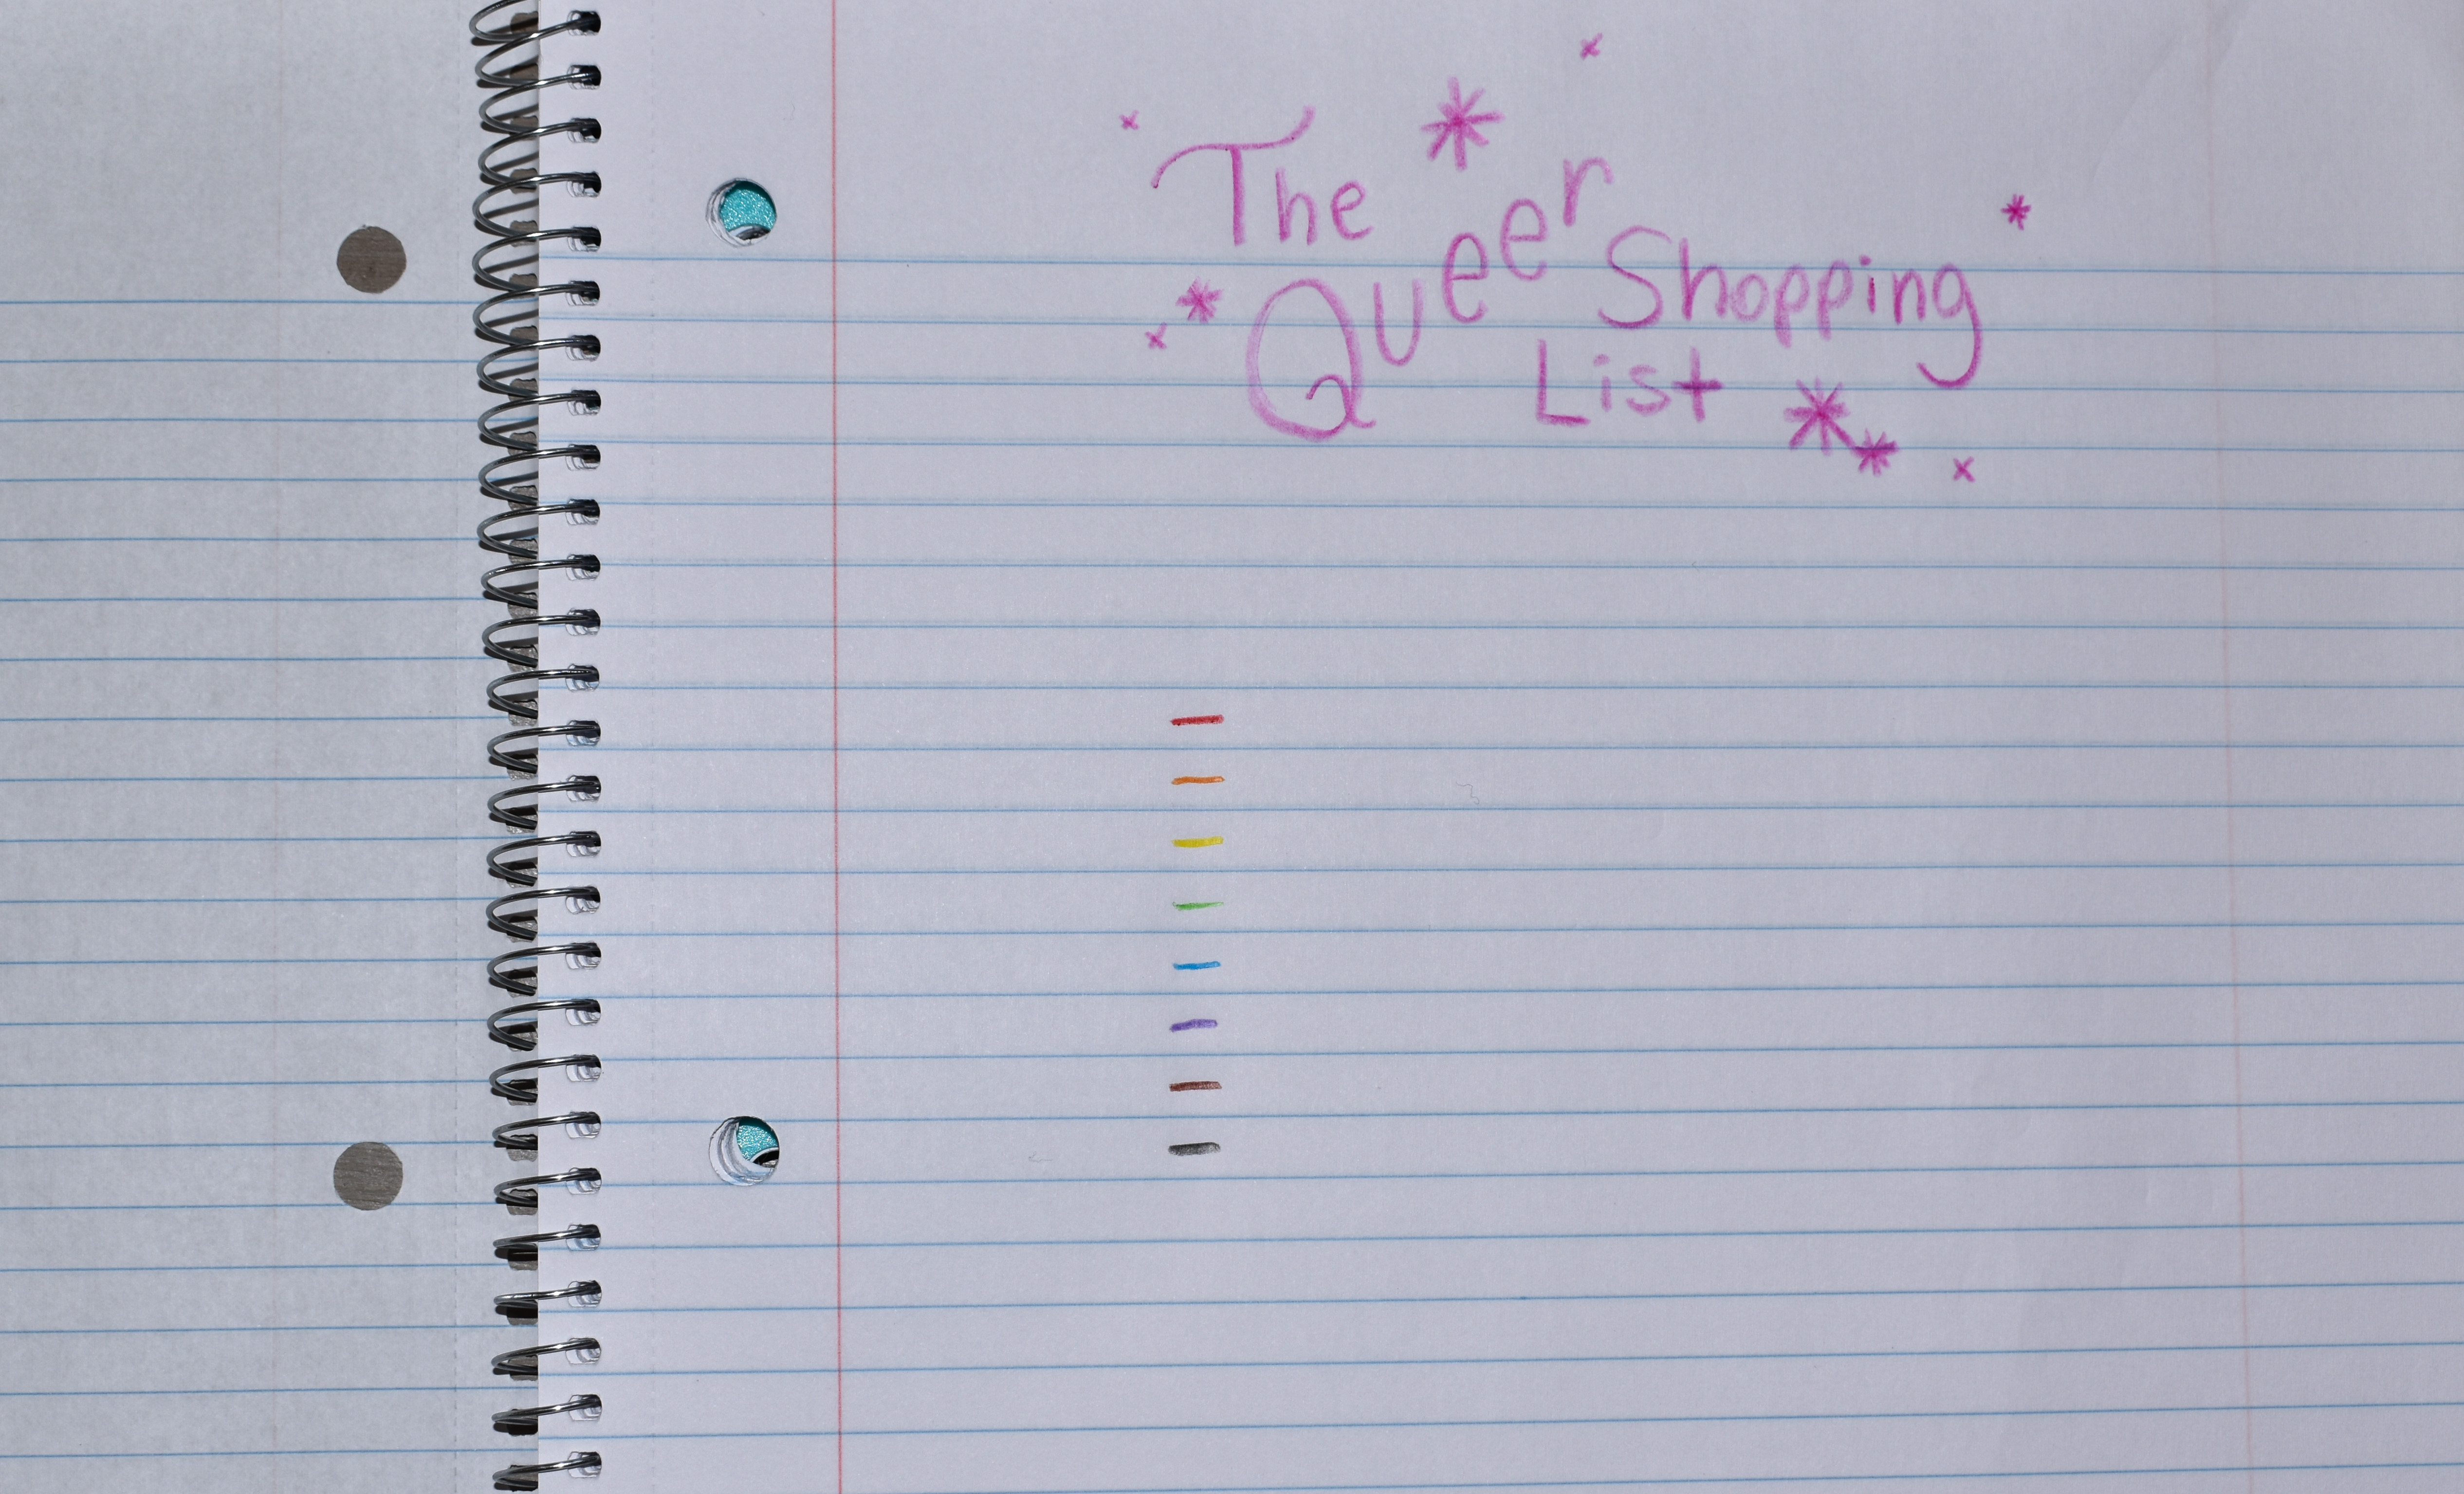 The
Queer Shopping
List